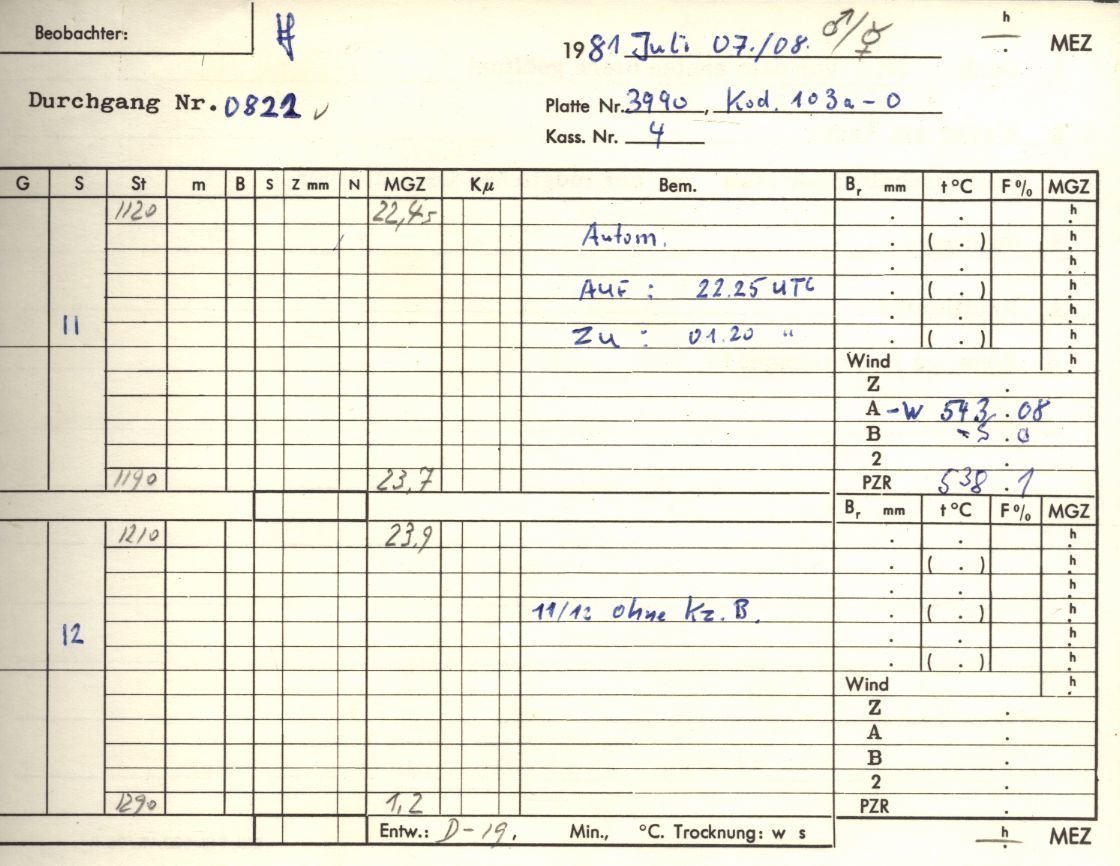 Beobachter:
1981 Juli 07./08. ♂/☿
h
. MEZ
Durchgang Nr. 0821
Platte Nr. 3990, Kod. 103a-O
Kass. Nr. 4
G S St m B S Z mm N MGZ Kμ Bem. Br mm t°C F% MGZ
1120 22,45 . . h
Autom. . ( . ) h
. . h
AUF : 22.25 UTC . ( . ) h
. . h
11 ZU : 01.20 " . ( . ) h
Wind h
Z .
A -W 543.08
B -5.0
2 .
1190 23,7 PZR 538.1
Br mm t°C F% MGZ
1210 23,9 . . h
. ( . ) h
. . h
11/12 ohne Kz. B. . ( . ) h
12 . . h
. ( . ) h
Wind h
Z .
A .
B .
2 .
1290 1,2 PZR
Entw.: D-19. Min., °C. Trocknung: w s
h
. MEZ